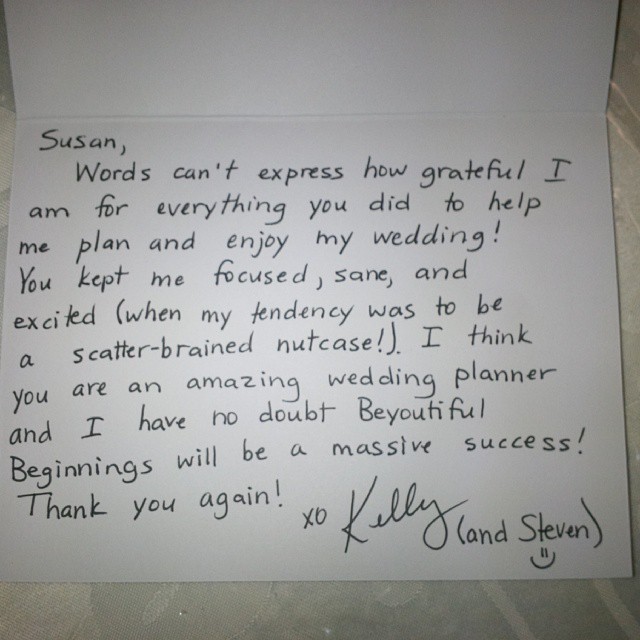 Susan,
Words can't express how grateful I
am for everything you did to help
me plan and enjoy my wedding!
You kept me focused, sane, and
excited (when my tendency was to be
a scatter-brained nutcase!). I think
you are an amazing wedding planner
and I have no doubt Beyoutiful
Beginnings will be a massive success!
Thank you again!
xo Kelly (and Steven)